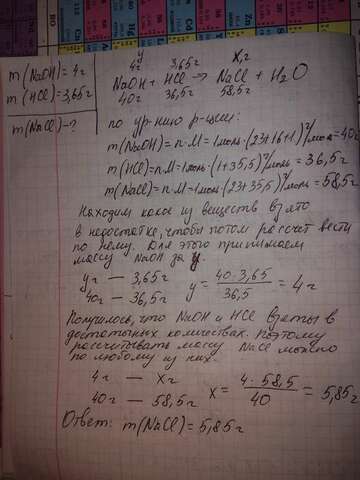 m(NaOH)=4г
m(HCl)=3,65г
m(NaCl)-?
y
4г 3,65г x,г
NaOH + HCl → NaCl + H2O
40г 36,5г 58,5г
по ур-нию р-ции:
m(NaOH)=n·M=1моль·(23+16+1)г/моль=40г
m(HCl)=n·M=1моль·(1+35,5)г/моль=36,5г
m(NaCl)=n·M=1моль(23+35,5)г/моль=58,5г
Находим какое из веществ взято
в недостатке, чтобы потом рассчет вести
по нему. Для этого принимаем
массу NaOH за y.
yг — 3,65г
40г — 36,5г
y = 40·3,65 / 36,5 = 4г
Получилось, что NaOH и HCl взяты в
достаточных количествах. Поэтому
рассчитывать массу NaCl можно
по любому из них.
4г — xг
40г — 58,5г
x = 4·58,5 / 40 = 5,85г
Ответ: m(NaCl)=5,85г